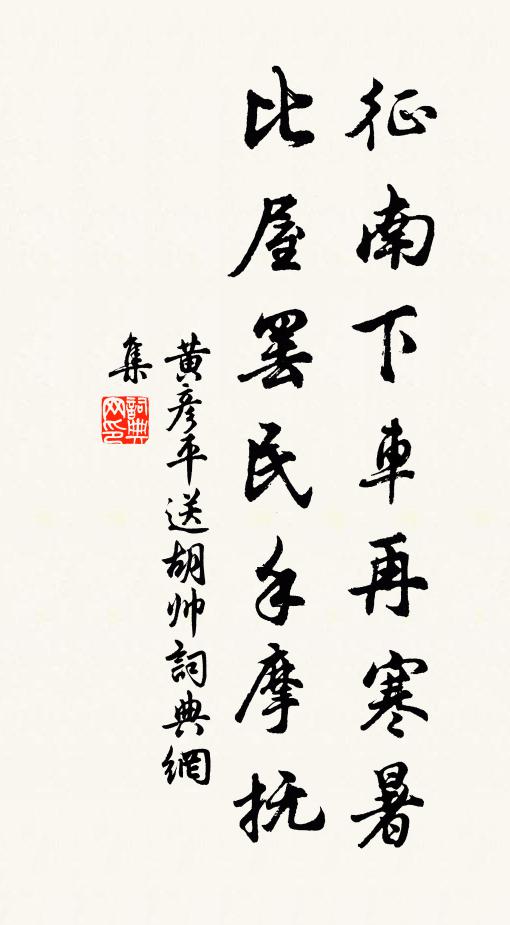 征南下車再寒暑
比屋罢民手摩抚
黄彦平送胡帅詞典網
集
詞典
网印